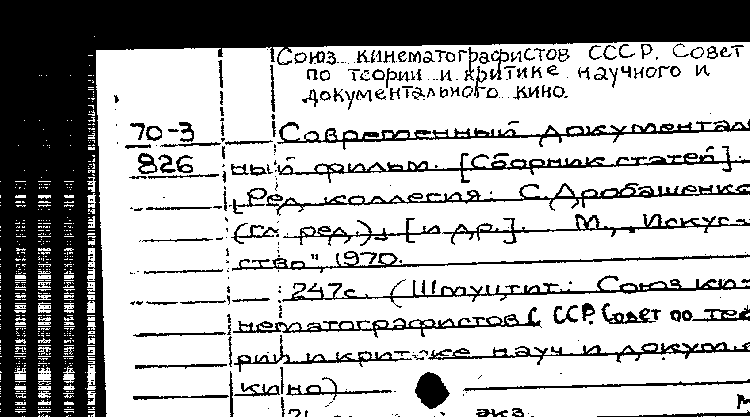 Союз кинематографистов СССР. Совет
по теории и критике научного и
документального кино.
70-3 Современный документаль-
826 ный фильм. [Сборник статей].
[Ред. коллегия: С. Дробашенко
(гл. ред.), [и др.]. М., „Искус-
ство", 1970.
247с. (Шмуцтит.: Союз ки-
нематографистов СССР. Совет по тео-
рии и критике науч и докум.
кино)
экз.